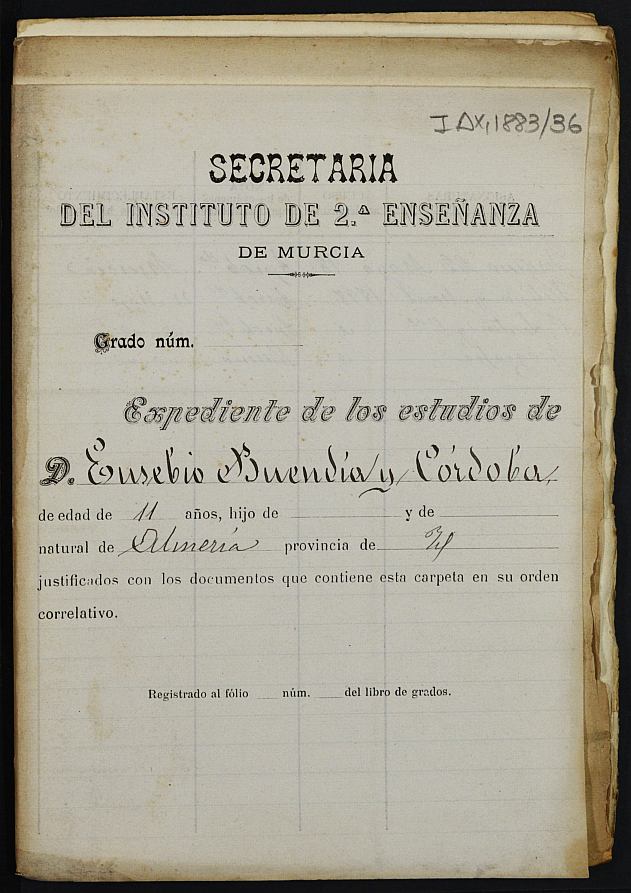 I AX, 1883/36
SECRETARIA
DEL INSTITUTO DE 2.ª ENSEÑANZA
DE MURCIA
Grado núm.
Expediente de los estudios de
D. Eusebio Buendía y Córdoba,
de edad de 11 años, hijo de y de
natural de Almería provincia de Id
justificados con los documentos que contiene esta carpeta en su orden
correlativo.
Registrado al fólio núm. del libro de grados.